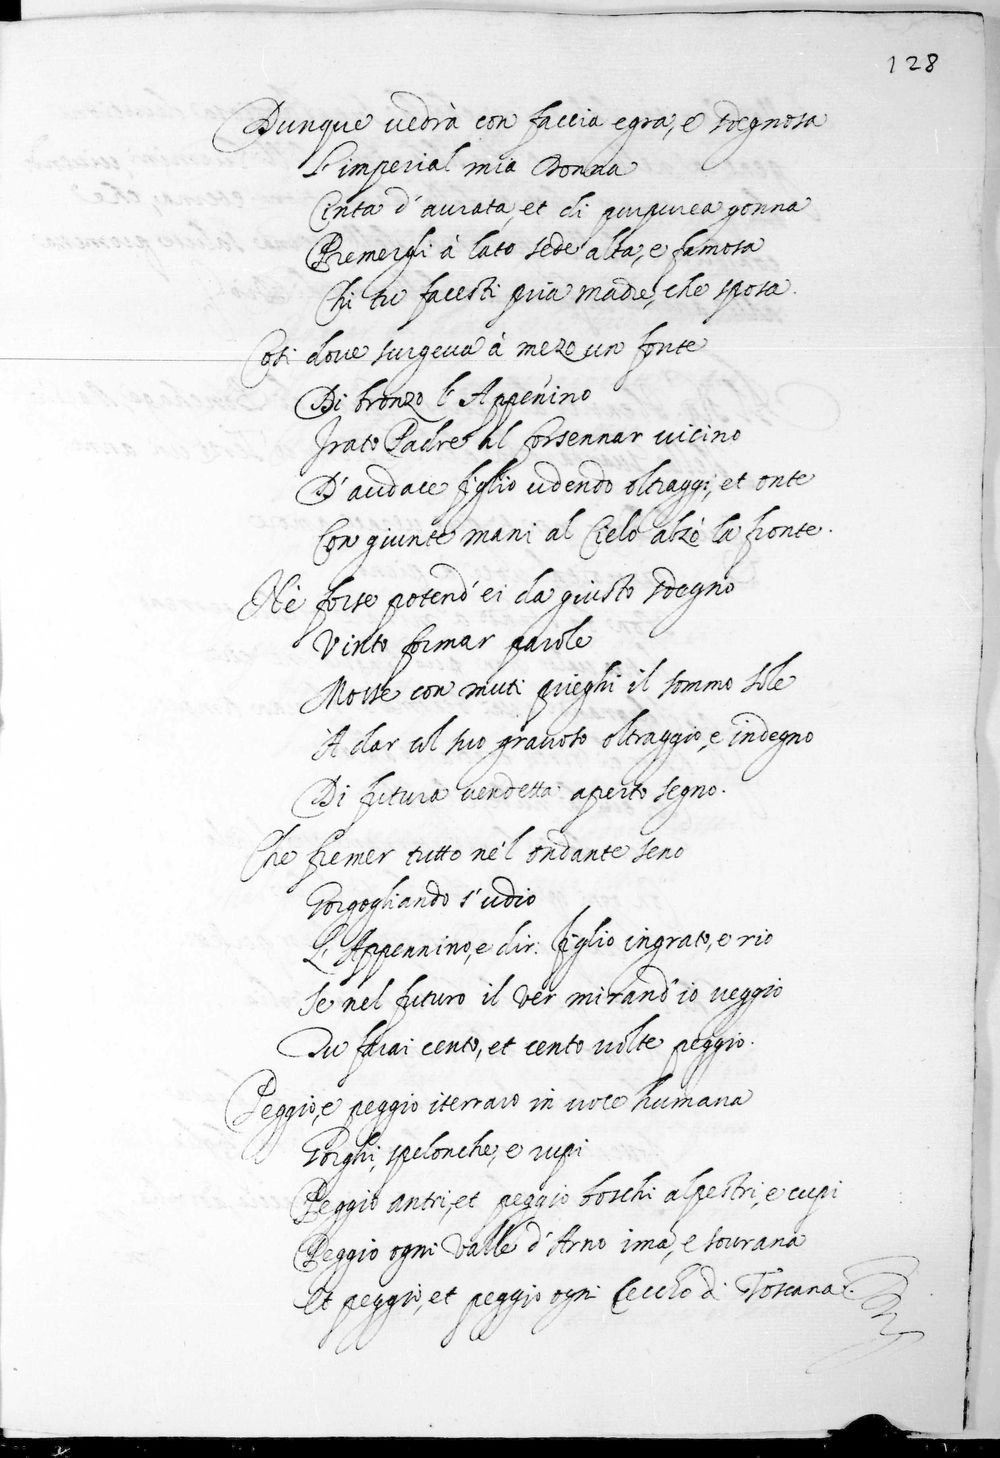 128
Dunque vedrà con faccia egra, e sdegnosa
L'imperial mia Donna
Cinta d'aurata, et di purpurea gonna
Premergli à lato sede alta, e famosa
Chi tu facesti pria madre, che sposa.
Così dove surgeva à mezo un fonte
Di bronzo l'Appenino
Irato Padre al forsennar vicino
D'audace figlio udendo oltraggi, et onte
Con giunte mani al Cielo alzò la fronte.
Nè forse potend' ei da giusto sdegno
Vinto formar parole
Mosse con muti prieghi il sommo sole
A dar al suo gravoso oltraggio, e indegno
Di futura vendetta aperto segno.
Che fremer tutto ne'l ondante seno
Gorgogliando s'udio
L'Appennino, e dir: figlio ingrato, e rio
Se nel futuro il ver mirand' io veggio
Tu farai cento, et cento volte peggio.
Peggio, e peggio iterraro in voce humana
Gorghi, spelonche, e rupi
Peggio antri, et peggio boschi alpestri, e cupi
Peggio ogni Valle d'Arno ima, e sovrana
Et peggio, et peggio ogni Cecho di Toscana.